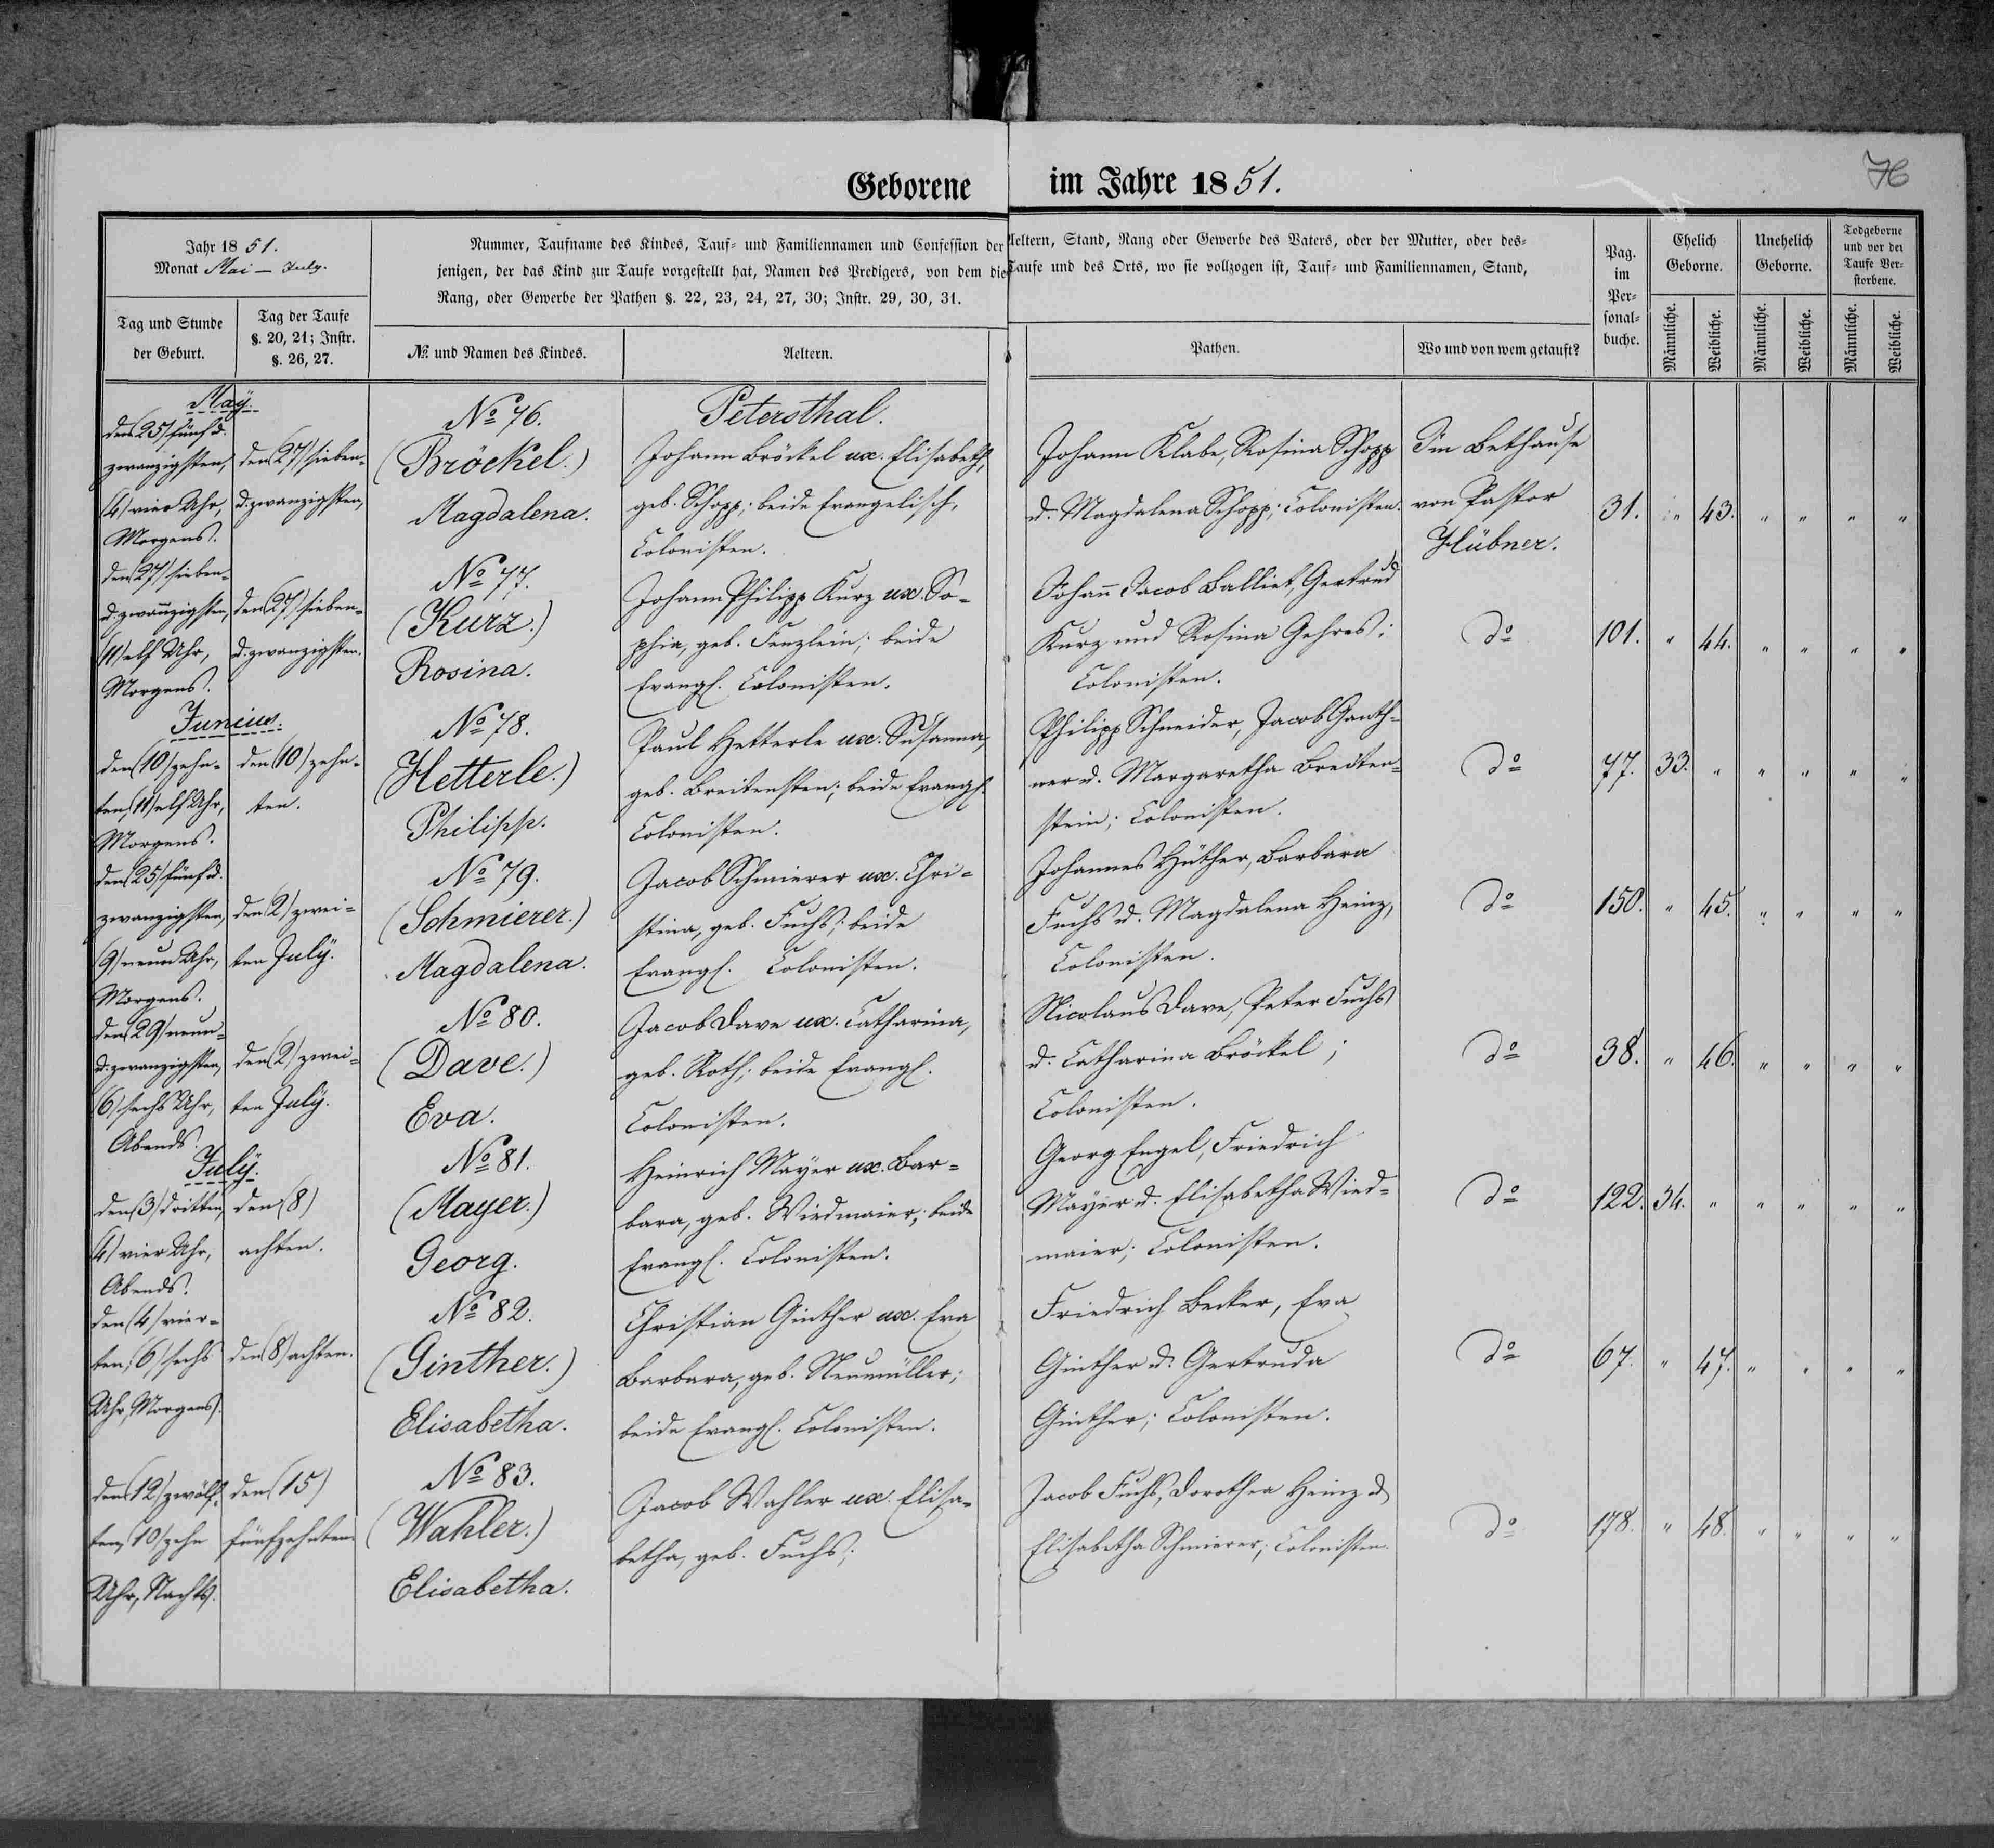 Geborene im Jahre 1851.
76
Jahr 1851.
Monat Mai — July.
Nummer, Taufname des Kindes, Tauf- und Familiennamen und Confession der Aeltern, Stand, Rang oder Gewerbe des Vaters, oder der Mutter, oder des-
jenigen, der das Kind zur Taufe vorgestellt hat, Namen des Predigers, von dem die Taufe und des Orts, wo sie vollzogen ist, Tauf- und Familiennamen, Stand,
Rang, oder Gewerbe der Pathen §. 22, 23, 24, 27, 30; Instr. 29, 30, 31.
Tag und Stunde
der Geburt.
Tag der Taufe
§. 20, 21; Instr.
§. 26, 27.
№ und Namen des Kindes.
Aeltern.
Pathen.
Wo und von wem getauft?
Pag.
im
Per-
sonal-
buche.
Ehelich
Geborne.
Unehelich
Geborne.
Todgeborne
und vor der
Taufe Ver-
storbene.
Männliche.
Weibliche.
Männliche.
Weibliche.
Männliche.
Weibliche.
May.
den (25) fünf u.
zwanzigsten,
(4) vier Uhr,
Morgens.
den (27) sieben-
u. zwanzigsten,
No 76.
(Bröckel.)
Magdalena.
Petersthal.
Johann Bröckel ux. Elisabeth,
geb. Schopp; beide Evangelisch,
Colonisten.
Johann Klabe, Rosina Schopp
u. Magdalena Schopp; Colonisten.
Im Bethause
von Pastor
Hübner.
31. " 43. " " " "
den (27) sieben-
u. zwanzigsten,
(11) elf Uhr,
Morgens.
den (27) sieben-
u. zwanzigsten.
No 77.
(Kurz.)
Rosina.
Johann Philipp Kurz ux. So-
phia, geb. Fenzlein; beide
Evangl. Colonisten.
Johann Jacob Balliet, Gertrud
Kurz und Rosina Gehres;
Colonisten.
do
101. " 44. " " " "
Junius.
den (10) zehn-
ten, (11) elf Uhr,
Morgens.
den (10) zehn-
ten.
No 78.
(Hetterle.)
Philipp.
Paul Hetterle ux. Susanna,
geb. Breitensten; beide Evangl.
Colonisten.
Philipp Schneider, Jacob Ganth-
ner u. Margaretha Breiten-
stein; Colonisten.
do
77. 33. " " " " "
den (25) fünf u.
zwanzigsten,
(9) neun Uhr,
Morgens.
den (2) zwei-
ten July.
No 79.
(Schmierer.)
Magdalena.
Jacob Schmierer ux. Chri-
stina, geb. Fuchs; beide
Evangl. Colonisten.
Johannes Hüther, Barbara
Fuchs u. Magdalena Heinz,
Colonisten.
do
150. " 45. " " " "
den (29) neun-
u. zwanzigsten,
(6) sechs Uhr,
Abends.
den (2) zwei-
ten July.
No 80.
(Dave.)
Eva.
Jacob Dave ux. Catharina,
geb. Roth; beide Evangl.
Colonisten.
Nicolaus Dave, Peter Fuchs
u. Catharina Bröckel;
Colonisten.
do
38. " 46. " " " "
July.
den (3) dritten,
(4) vier Uhr,
Abends.
den (8)
achten.
No 81.
(Mayer.)
Georg.
Heinrich Mayer ux. Bar-
bara, geb. Wiedmaier; beide
Evangl. Colonisten.
Georg Engel, Friedrich
Mayer u. Elisabetha Wied-
maier; Colonisten.
do
122. 34. " " " " "
den (4) vier-
ten, (6) sechs
Uhr, Morgens.
den (8) achten.
No 82.
(Ginther.)
Elisabetha.
Christian Ginther ux. Eva
Barbara, geb. Neumüller;
beide Evangl. Colonisten.
Friedrich Becker, Eva
Ginther u. Gertruda
Ginther; Colonisten.
do
67. " 47. " " " "
den (12) zwölf-
ten, 10) zehn
Uhr, Nachts.
den (15)
fünfzehnten.
No 83.
(Wahler.)
Elisabetha.
Jacob Wahler ux. Elisa-
betha, geb. Fuchs;
Jacob Fuchs, Dorothea Heinz u
Elisabetha Schmierer; Colonisten.
do
178. " 48. " " " "